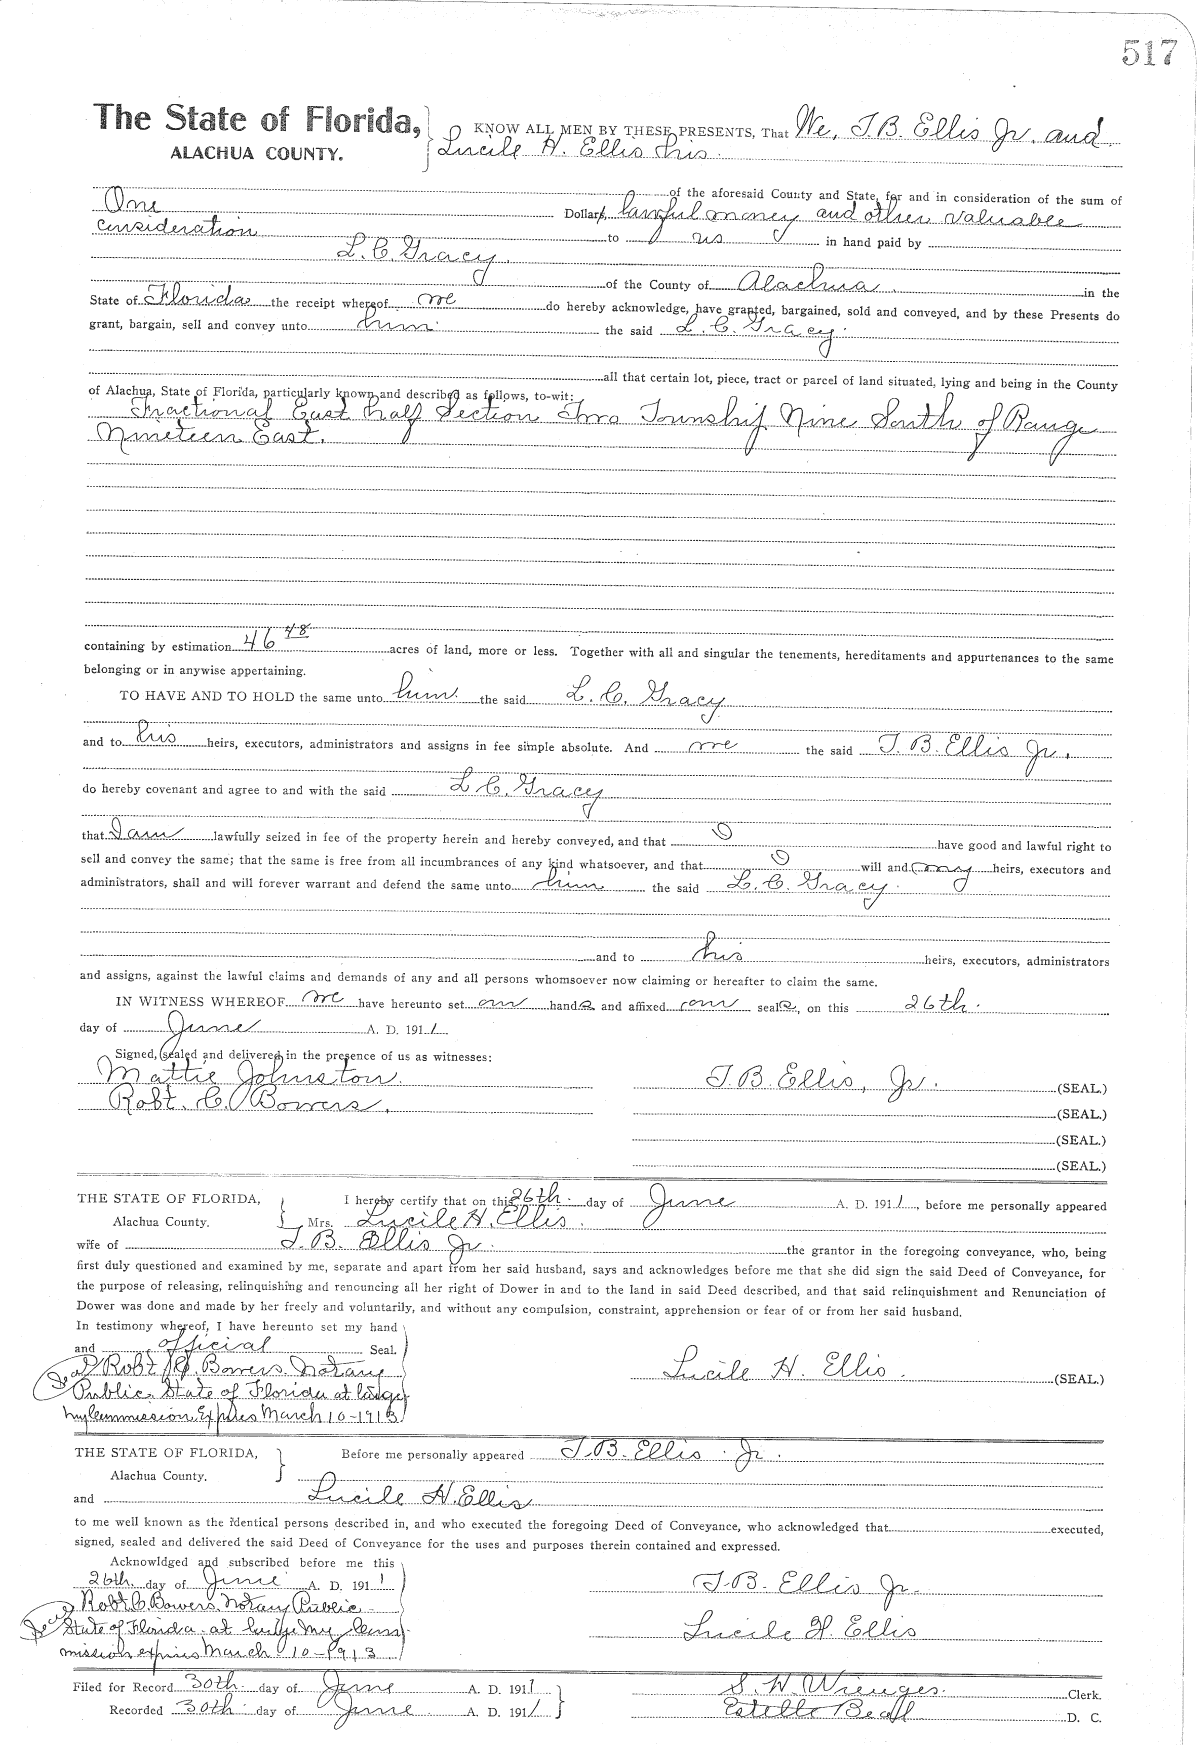 517
The State of Florida,
ALACHUA COUNTY.
KNOW ALL MEN BY THESE PRESENTS, That We, T.B. Ellis Jr. and
Lucile H. Ellis his
of the aforesaid County and State, for and in consideration of the sum of
One Dollar, lawful money and other valuable
consideration to us in hand paid by
L.C. Gracy.
of the County of Alachua in the
State of Florida the receipt whereof we do hereby acknowledge, have granted, bargained, sold and conveyed, and by these Presents do
grant, bargain, sell and convey unto him the said L.C. Gracy.
all that certain lot, piece, tract or parcel of land situated, lying and being in the County
of Alachua, State of Florida, particularly known and described as follows, to-wit:
Fractional East half Section Two Township Nine South of Range
Nineteen East.
containing by estimation 46 48 acres of land, more or less. Together with all and singular the tenements, hereditaments and appurtenances to the same
belonging or in anywise appertaining.
TO HAVE AND TO HOLD the same unto him the said L.C. Gracy
and to his heirs, executors, administrators and assigns in fee simple absolute. And we the said T.B. Ellis Jr.
do hereby covenant and agree to and with the said L.C. Gracy
that I am lawfully seized in fee of the property herein and hereby conveyed, and that I have good and lawful right to
sell and convey the same; that the same is free from all incumbrances of any kind whatsoever, and that I will and my heirs, executors and
administrators, shall and will forever warrant and defend the same unto him the said L.C. Gracy.
and to his heirs, executors, administrators
and assigns, against the lawful claims and demands of any and all persons whomsoever now claiming or hereafter to claim the same.
IN WITNESS WHEREOF we have hereunto set our hands and affixed our seals, on this 26th.
day of June A. D. 1911
Signed, sealed and delivered in the presence of us as witnesses:
Mattie Johnston. T.B. Ellis, Jr. (SEAL.)
Robt. C. Bowers. (SEAL.)
(SEAL.)
(SEAL.)
THE STATE OF FLORIDA, I hereby certify that on this 26th. day of June A. D. 1911, before me personally appeared
Alachua County. Mrs. Lucile H. Ellis.
wife of T.B. Ellis Jr. the grantor in the foregoing conveyance, who, being
first duly questioned and examined by me, separate and apart from her said husband, says and acknowledges before me that she did sign the said Deed of Conveyance, for
the purpose of releasing, relinquishing and renouncing all her right of Dower in and to the land in said Deed described, and that said relinquishment and Renunciation of
Dower was done and made by her freely and voluntarily, and without any compulsion, constraint, apprehension or fear of or from her said husband.
In testimony whereof, I have hereunto set my hand
and official Seal.
Seal Robt C. Bowers. Notary Lucile H. Ellis. (SEAL.)
Public. State of Florida at large
My Commission Expires March 10-1913
THE STATE OF FLORIDA, Before me personally appeared T.B. Ellis Jr.
Alachua County.
and Lucile H. Ellis
to me well known as the identical persons described in, and who executed the foregoing Deed of Conveyance, who acknowledged that executed,
signed, sealed and delivered the said Deed of Conveyance for the uses and purposes therein contained and expressed.
Acknowldged and subscribed before me this
26th. day of June A. D. 1911 T.B. Ellis Jr.
Robt C. Bowers. Notary Public
Seal State of Florida at large My Com Lucile H. Ellis
mission expires March 10-1913
Filed for Record 30th. day of June A. D. 1911 S. H. Wienges. Clerk.
Recorded 30th. day of June. A. D. 1911 Estelle Beall D. C.